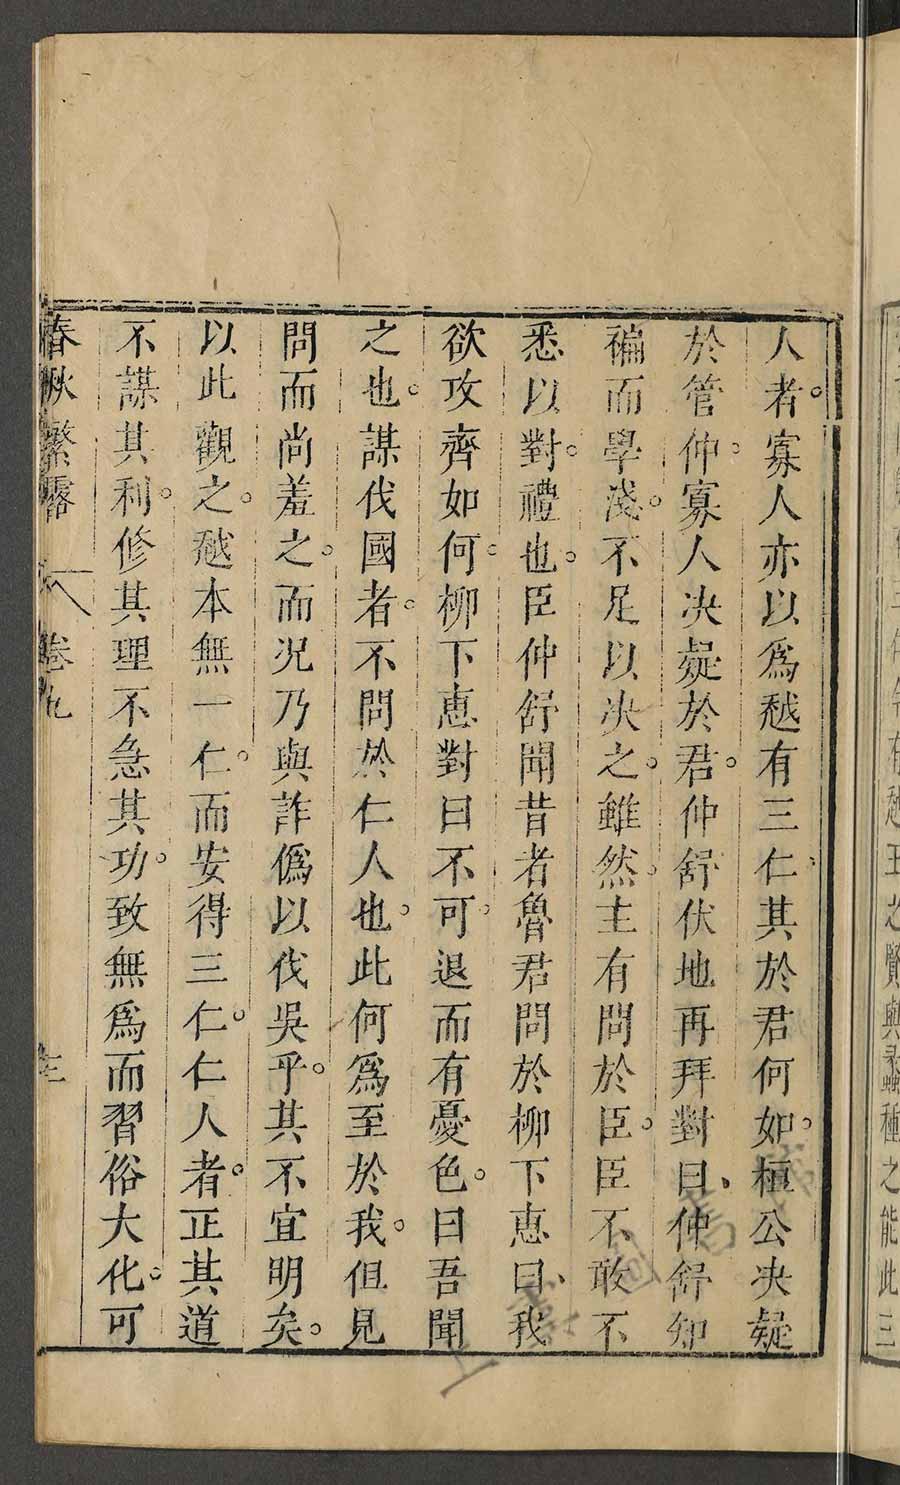 人者。寡人亦以爲越有三仁、其於君何如。桓公决疑
於管仲。寡人决疑於君。仲舒伏地再拜對曰、仲舒知
褊而學淺。不足以决之。雖然。主有問於臣。臣不敢不
悉以對。禮也。臣仲舒聞昔者魯君問於柳下惠曰、我
欲攻齊如何。柳下惠對曰不可。退而有憂色。曰吾聞
之也。謀伐國者。不問於仁人也。此何爲至於我。但見
問而尚羞之。而况乃與詐僞以伐吳乎。其不宜明矣。
以此觀之。越本無一仁。而安得三仁。仁人者。正其道
不謀其利。修其理不急其功。致無爲而習俗大化。可
春秋繁露 卷九 三